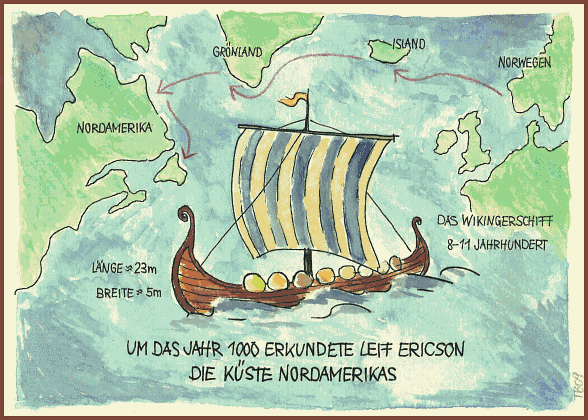 GRÖNLAND
ISLAND
NORWEGEN
NORDAMERIKA
DAS WIKINGERSCHIFF
8-11 JAHRHUNDERT
LÄNGE ≈ 23m
BREITE ≈ 5m
UM DAS JAHR 1000 ERKUNDETE LEIF ERICSON
DIE KÜSTE NORDAMERIKAS